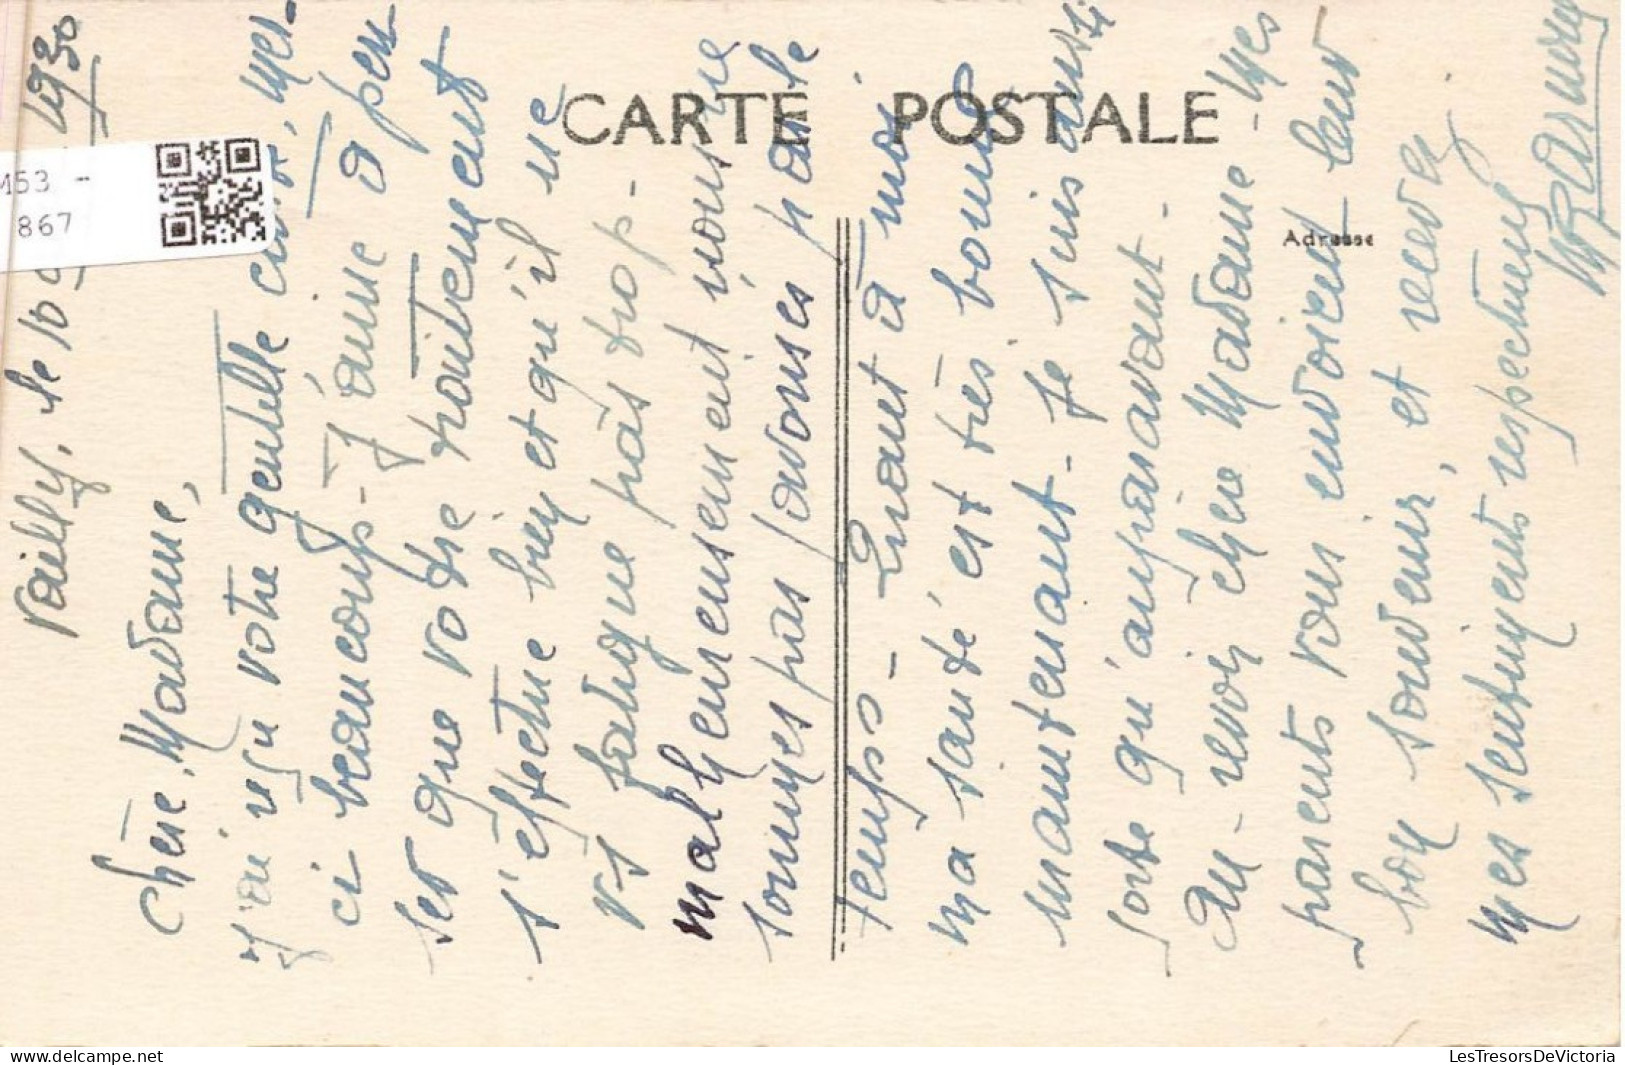 Vailly, le 10 1930
Chère Madame,
J'ai reçu votre gentille carte, mer-
ci beaucoup - J'aime à pen-
ser que votre traitement
s'effectue bien et qu'il ne
vs fatigue pas trop -
malheureusement nous ne
sommes pas favorisés par le
temps - Quant à moi
ma santé est très bonne
maintenant - Je suis aussi
forte qu'auparavant -
Au-revoir chère Madame - Mes
parents vous envoient leur
bon souvenir, et recevez
mes sentiments respectueux
CARTE POSTALE
Adresse
M53 -
867
LesTresorsDeVictoria
www.delcampe.net